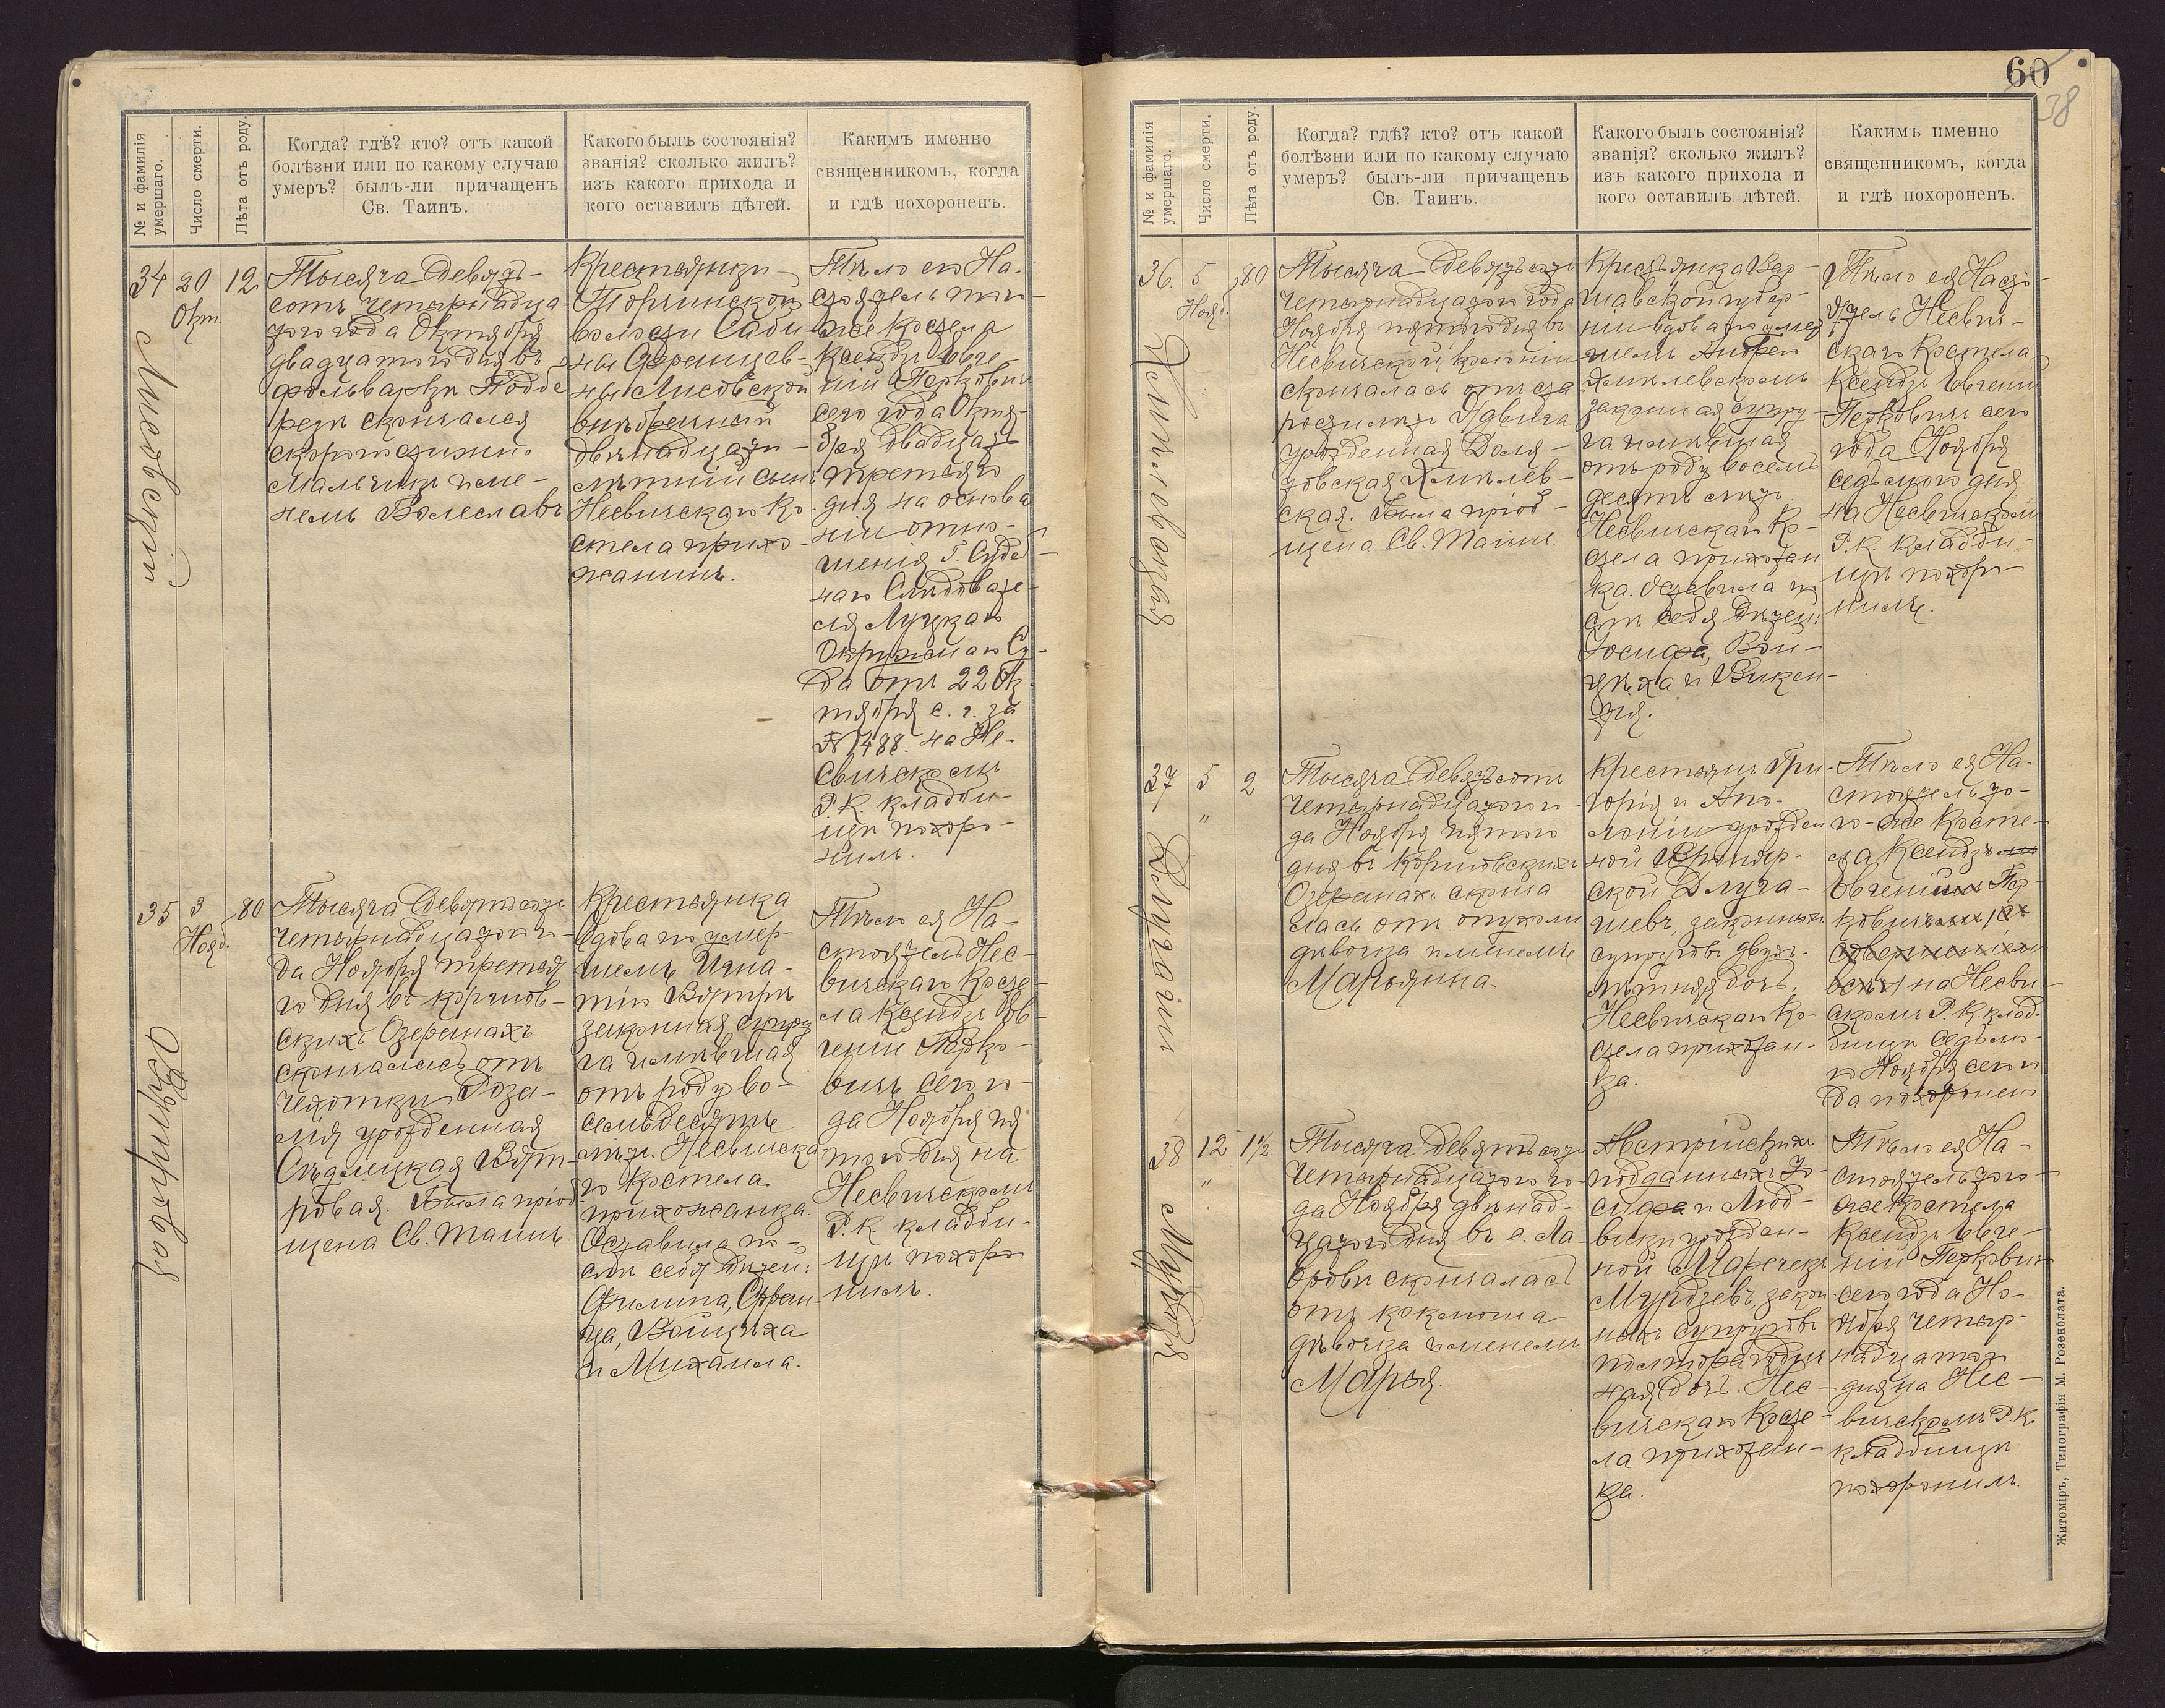 № и фамилія умершаго.
Число смерти.
Лѣта отъ роду.
Когда? гдѣ? кто? отъ какой
болѣзни или по какому случаю
умеръ? былъ-ли причащенъ
Св. Таинъ.
Какого былъ состоянія?
званія? сколько жилъ?
изъ какого прихода и
кого оставилъ дѣтей.
Какимъ именно
священникомъ, когда
и гдѣ похороненъ.
34
Лисовскій
20
Окт.
12
Тысяча девятъ-
сотъ четырнадца-
того года Октября
двадцатого дня въ
фольваркѣ Подде
рецъ скончался
скоропостижно
мальчикъ име-
немъ Болеславъ
Крестьянки
Торчинской
волости Саби-
ны Францев-
ны Лисовской
внѣбрачный
двѣнадцати-
лѣтній сынъ
Несвичскаго Ко-
стела прихо-
жанинъ.
Тѣло его На-
стоятель того-
же костела
Ксендзъ Евге-
ній Перковичъ
сего года Октя-
бря двадцать
третьяго
дня на основа
ніи отно-
шенія Г. Судеб-
наго Слѣдовате-
ля Луцкаго
Окружнаго Су-
да отъ 22 Ок-
тября с. г. за
№ 1488. на Не-
свичскомъ
Р. К. кладби-
щѣ похоро-
нилъ.
35
Вятровая
3
Нояб.
80
Тысяча девятьсотъ
четырнадцатого го-
да Ноября третья
го дня въ Коршов-
скихъ Озерцахъ
скончалась отъ
чахотки Роза-
лія урожденная
Сѣдлецкая Вят-
ровая. Была пріоб
щена Св. Таинъ.
Крестьянка
вдова по умер-
шемъ Игна-
тію Вятрѣ
законная супру
га имѣвшая
отъ роду во-
семьдесятъ
лѣтъ. Несвичска-
го Костела
прихожанка.
Оставила по-
слѣ себя дѣтей:
Филипа, Фран-
ца, Войцѣха
и Михаила.
Тѣло ея На-
стоятель Нес-
вичскаго Косте-
ла Ксендзъ Ев-
геній Перко-
вичъ сего го-
да Ноября пя
того дня на
Несвичскомъ
Р. К. кладби-
щѣ похоро
нилъ.
60
38
№ и фамилія умершаго.
Число смерти.
Лѣта отъ роду.
Когда? гдѣ? кто? отъ какой
болѣзни или по какому случаю
умеръ? былъ-ли причащенъ
Св. Таинъ.
Какого былъ состоянія?
званія? сколько жилъ?
изъ какого прихода и
кого оставилъ дѣтей.
Какимъ именно
священникомъ, когда
и гдѣ похороненъ.
36.
Хмѣлевская
5
Нояб.
80
Тысяча девятьсотъ
четырнадцатого года
Ноября пятого дня въ
Несвичской колоніи
скончалась отъ ста
рости лѣтъ Ядвига
урожденная Доля-
товская Хмѣлев-
ская. Была пріоб-
щена Св. Таинъ.
Крестьянка Вар-
шавской губер-
ніи вдова по умер
шемъ Андрею
Хмѣлевскомъ
законная супру
га имѣвшая
отъ роду восемь
десятъ лѣтъ
Несвичскаго Ко-
стела прихожан
ка. Оставила по
слѣ себя дѣтей:
Іосифа, Вой-
цѣха и Викен-
тія.
Тѣло ея Насто-
ятель Несвич-
скаго Костела
Ксендзъ Евгеній
Перковичъ сего
года Ноября
седьмого дня
на Несвичскомъ
Р. К. кладби-
щѣ похоро-
нилъ.
37
5
"
2
Тысяча девятьсотъ
четырнадцатого го-
да Ноября пятого
дня въ Коршовскихъ
Озерцахъ сконча
лась отъ опухоли
дѣвочка именемъ
Марьянна.
Крестьянъ Гри-
горія и Апо-
лоніи урожден
ной
ской Длуга-
шевъ, законныхъ
супруговъ двух-
лѣтняя дочь,
Несвичскаго Ко-
стела прихожан-
ка.
Тѣло ея На-
стоятель то-
го-же Косте-
ла Ксендзъ
Евгеній Пер-
ковичъ
на Несви-
скомъ Р. К. клад-
бищѣ седьмо-
го Ноября сего го
да похоронено
38
12
"
1½
Тысяча девятьсотъ
четырнадцатого го-
да Ноября двѣнад-
цатого дня въ с. Ла-
бровѣ скончалась
отъ коклюша
дѣвочка именемъ
Марья.
Австрійскихъ
подданныхъ Іо-
сифа и Люд-
вики урожден-
ной Маречекъ
закон-
ныхъ супруговъ
полторагодич-
ная дочь. Нес-
вичскаго Косте-
ла прихожан-
ка.
Тѣло ея На-
стоятель того-
же Костела
Ксендзъ Евге-
ній Перковичъ
сего года Но-
ября четыр-
надцатого
дня на Нес-
вичскомъ Р. К.
кладбищѣ
похоронилъ.
Житоміръ, Типографія М. Розенблата.